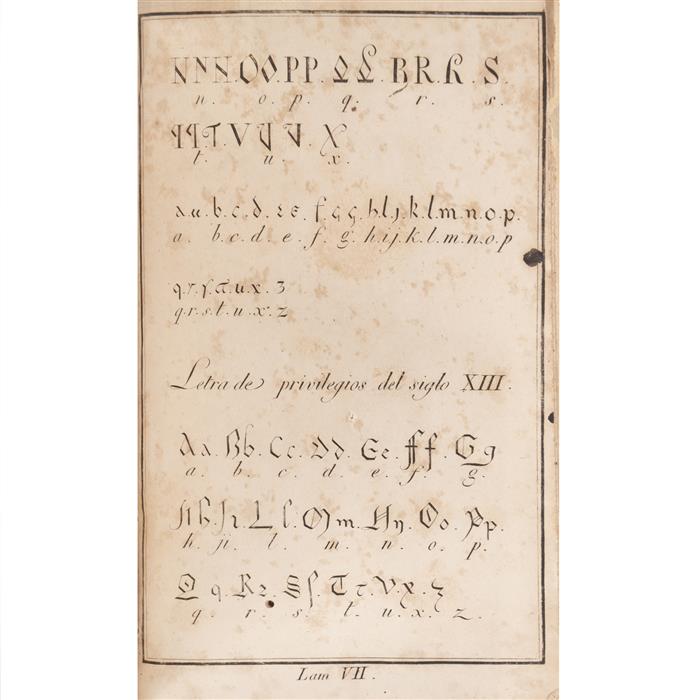 N N N. O O. P P. Q Q. R R. R. S.
n. o. p. q. r. s.
T T. T. V U U. X
t. u. x.
a a. b. c. d. e e. f. g g. h. i j. k. l. m. n. o. p.
a. b. c. d. e. f. g. h. ij. k. l. m. n. o. p
q. r. ſ. t. u. x. z
q. r. s. t. u. x. z
Letra de privilegios del siglo XIII.
A a. B b. C c. D d. E e. ff f. G g
a. b. c. d. e. f. g.
H h. J i. L l. M m. N n. O o. P p.
h. ji. l. m. n. o. p.
Q q. R r. S ſ. T t. V. X. z
q. r. s. t. u. x. z.
Lam VII.